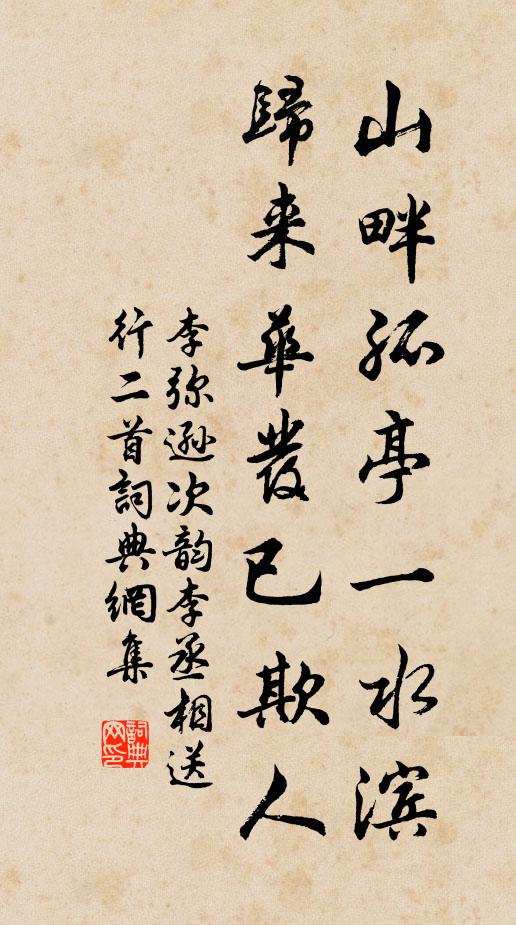 山畔孤亭一水滨
歸来華發已欺人
李弥逊次韵李丞相送
行二首詞典網集
詞典网印